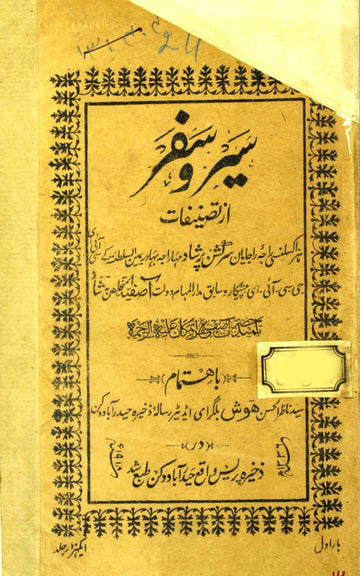 سیر و سفر
از تصنیفات
ہزاکسلنسی راجۂ راجایان سر کشن پرشاد مہاراجہ بہادر یمین السلطنۃ کے سی آئی ای
جی سی۔ آئی۔ ای پیشکار و سابق مدار المہام دولت آصفیہ المتخلص شاد
تلمیذ حضرت آصف
باہتمام
سید ناظر الحسن ہوش بلگرامی ایڈیٹر رسالۂ ذخیرہ حیدرآباد دکن
در
ذخیرہ پریس واقع حیدآباد دکن طبع شد
بار اول
ایکہزار جلد